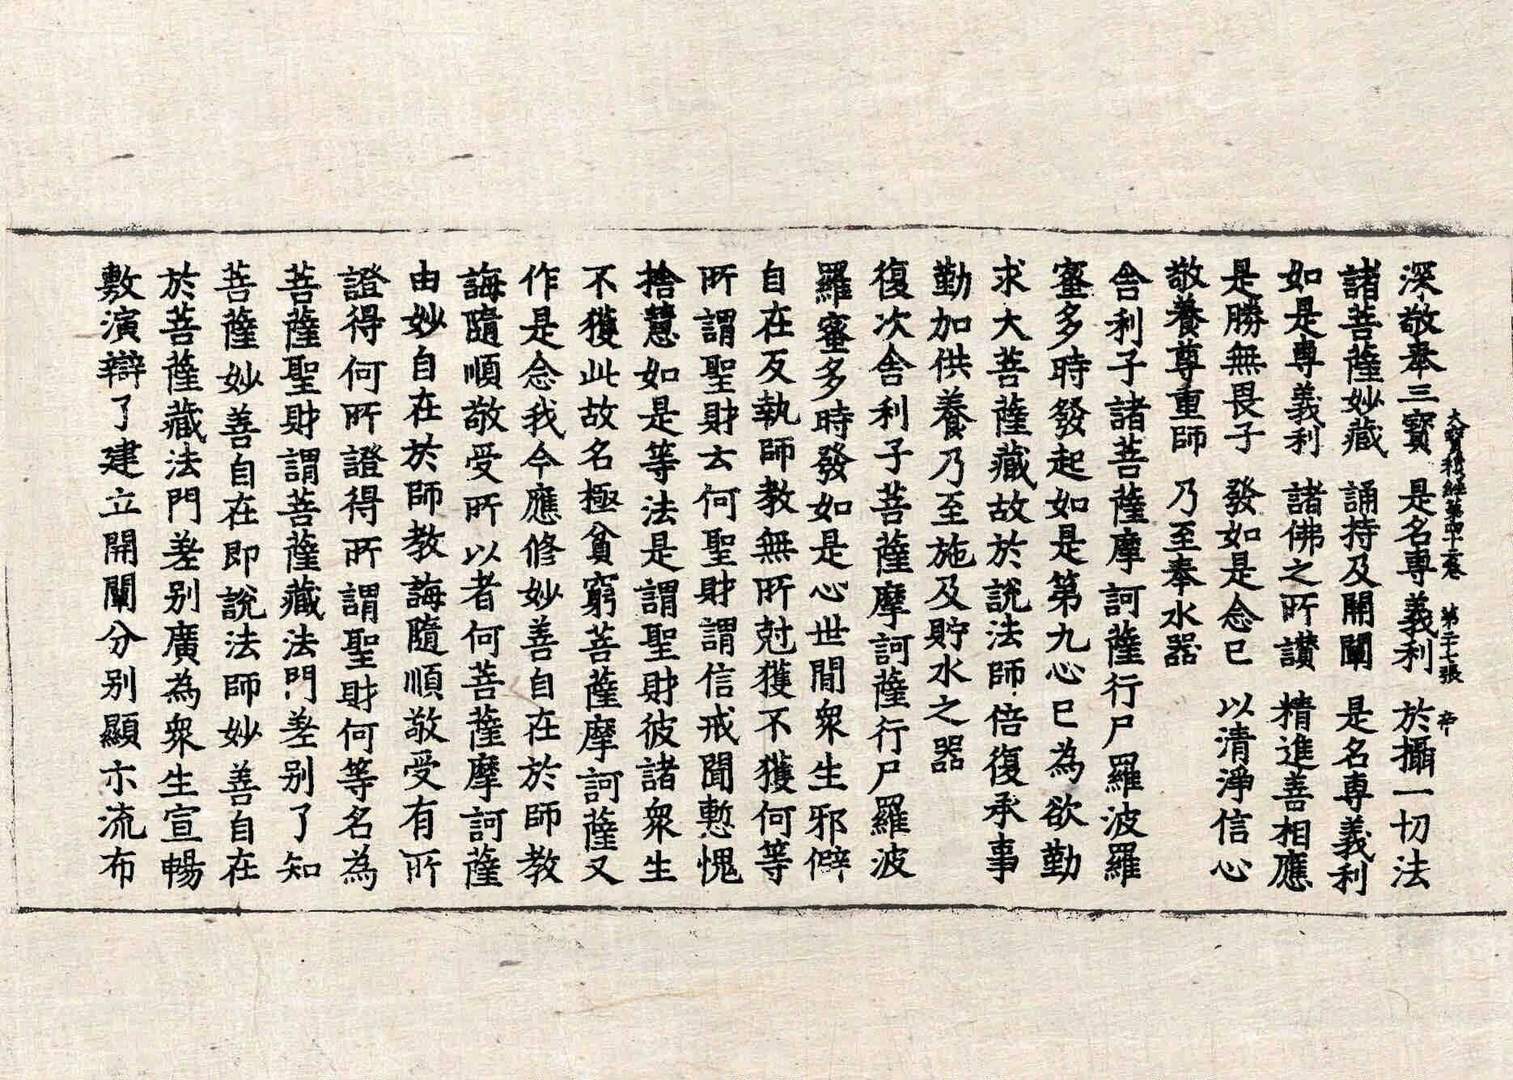 深敬奉三寶 是名專義利 於攝一切法
大寶積經第四十二卷 第二十七張 帝
諸菩薩妙藏 誦持及開闡 是名專義利
如是專義利 諸佛之所讃 精進善相應
是勝無畏子 發如是念已 以清淨信心
敬養尊重師 乃至奉水器
舎利子諸菩薩摩訶薩行尸羅波羅
蜜多時發起如是第九心已為欲勤
求大菩薩藏故於說法師倍復承事
勤加供養乃至施及貯水之器
復次舎利子菩薩摩訶薩行尸羅波
羅蜜多時發如是心世間衆生邪僻
自在反執師教無所尅獲不獲何等
所謂聖財云何聖財謂信戒聞慙愧
捨慧如是等法是謂聖財彼諸衆生
不獲此故名極貧窮菩薩摩訶薩又
作是念我今應修妙善自在於師教
誨隨順敬受所以者何菩薩摩訶薩
由妙自在於師教誨隨順敬受有所
證得何所證得所謂聖財何等名為
菩薩聖財謂菩薩藏法門差別了知
菩薩妙善自在即說法師妙善自在
於菩薩藏法門差別廣為衆生宣暢
敷演辯了建立開闡分別顯示流布